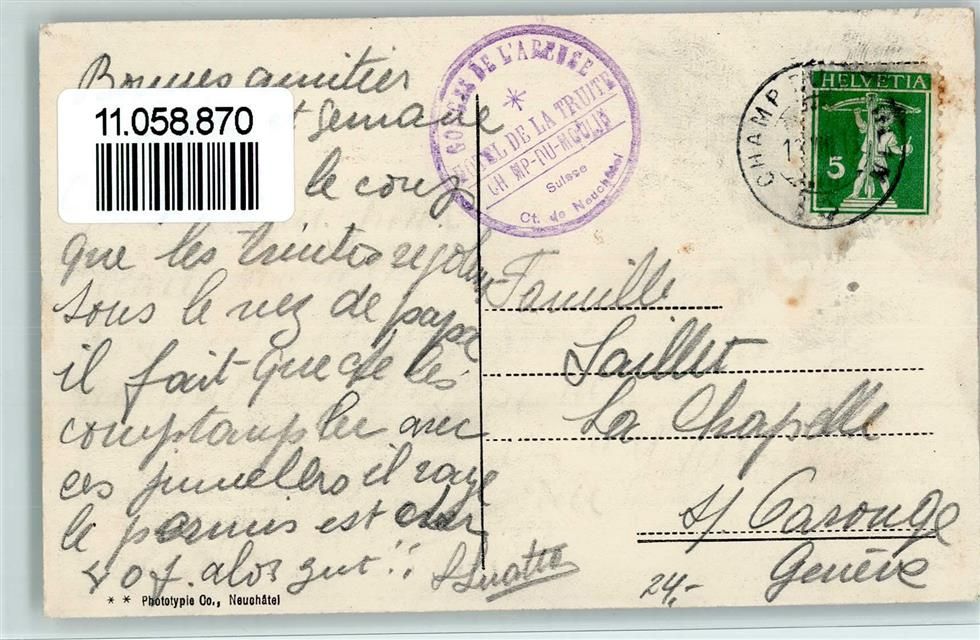 Bonnes amitier
11.058.870
Semaine
le couz
que les truites
sous le nez de papa
il fait que de les
comptampler avec
ces jumellers il rage
le permis est cher
40 f. alors zut !!
** Phototypie Co., Neuchâtel
GORGES DE L'AREUSE
HOTEL DE LA TRUITE
CHAMP-DU-MOULIN
Suisse
Ct. de Neuchâtel
CHAMP
HELVETIA
5
Famille
Saillet
La Chapelle
s/ Carouge
Genève
24,-